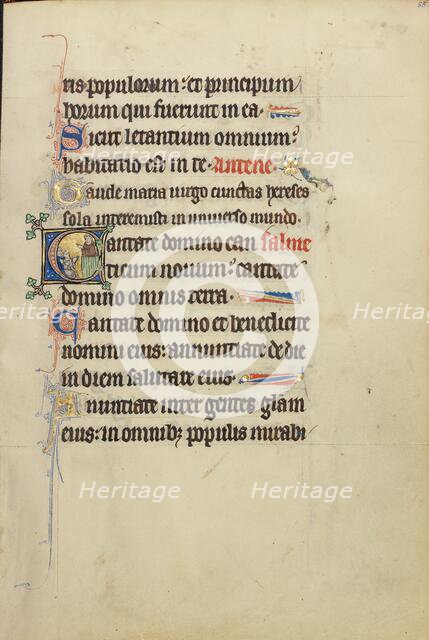 55
ris populorum: et principum
horum qui fuerunt in ea.
Sicut letantium omnium:
habitatio est in te. Antene
Gaude maria virgo cunctas hereses
sola interemisti in universo mundo.
Cantate domino can salme
ticum novum: cantate
domino omnis terra.
Cantate domino et benedicite
nomini eius: annuntiate de die
in diem salutare eius.
Annuntiate inter gentes gloriam
eius: in omnibz populis mirabi
Heritage Heritage
Heritage Heritage Heritage
Heritage Heritage